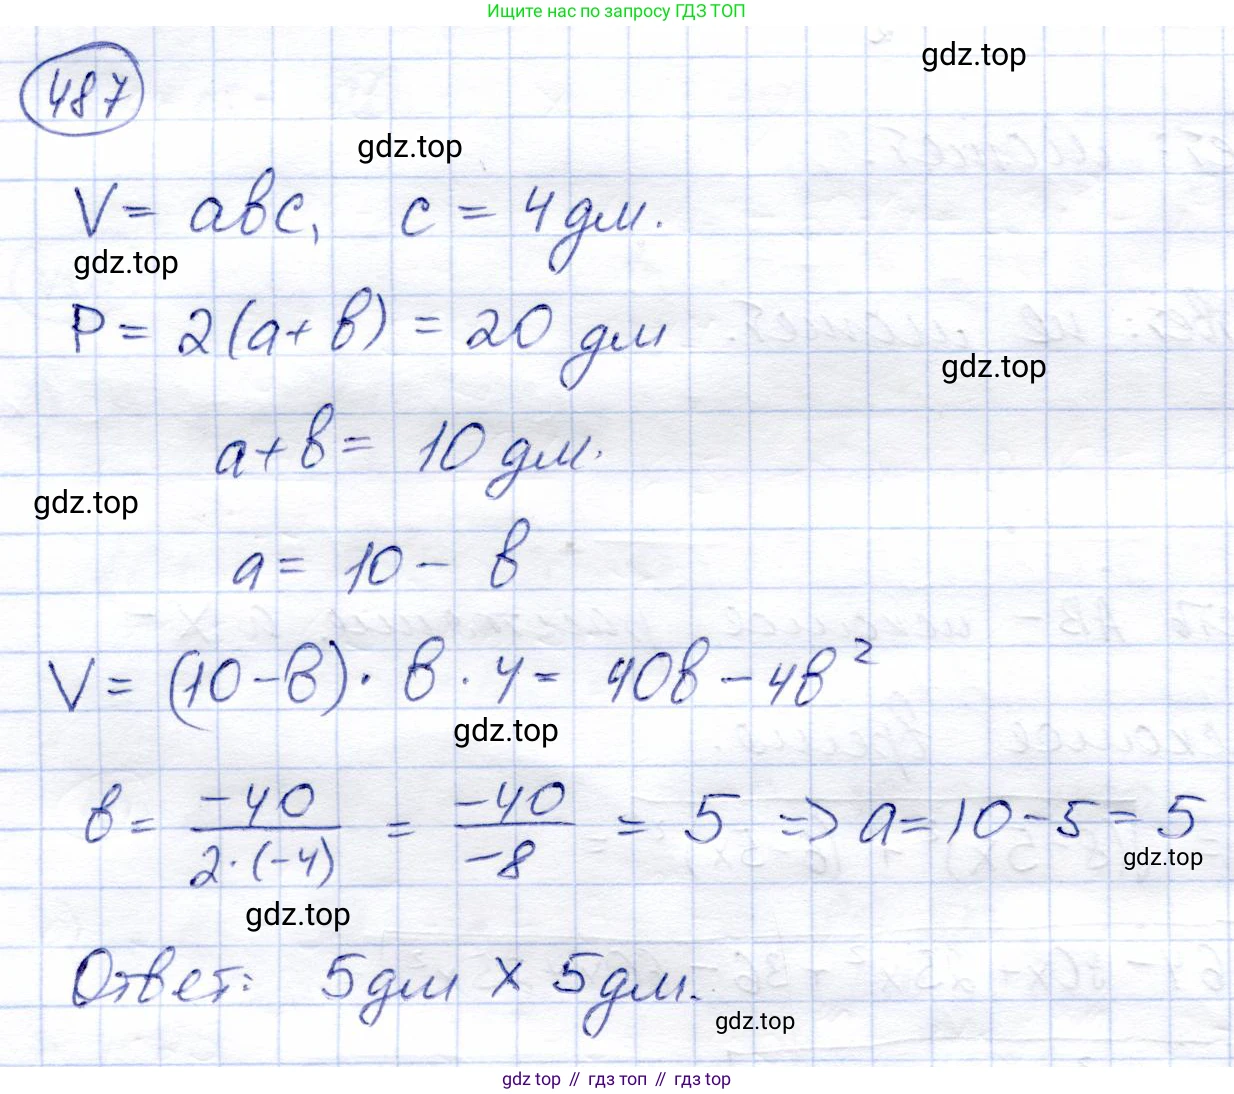 Ищите нас по запросу ГДЗ ТОП
gdz.top
487
gdz.top
V = abc, c = 4 дм.
gdz.top
P = 2(a+b) = 20 дм
gdz.top
a+b = 10 дм.
gdz.top
a = 10 - b
V = (10-b) · b · 4 = 40b - 4b²
gdz.top
b = -40 / 2·(-4) = -40 / -8 = 5 => a = 10 - 5 = 5
gdz.top
gdz.top
Ответ: 5дм x 5дм.
gdz.top
gdz top // гдз топ // гдз top